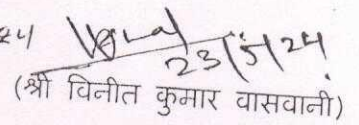 24
23/5/24
(श्री विनीत कुमार वासवानी)